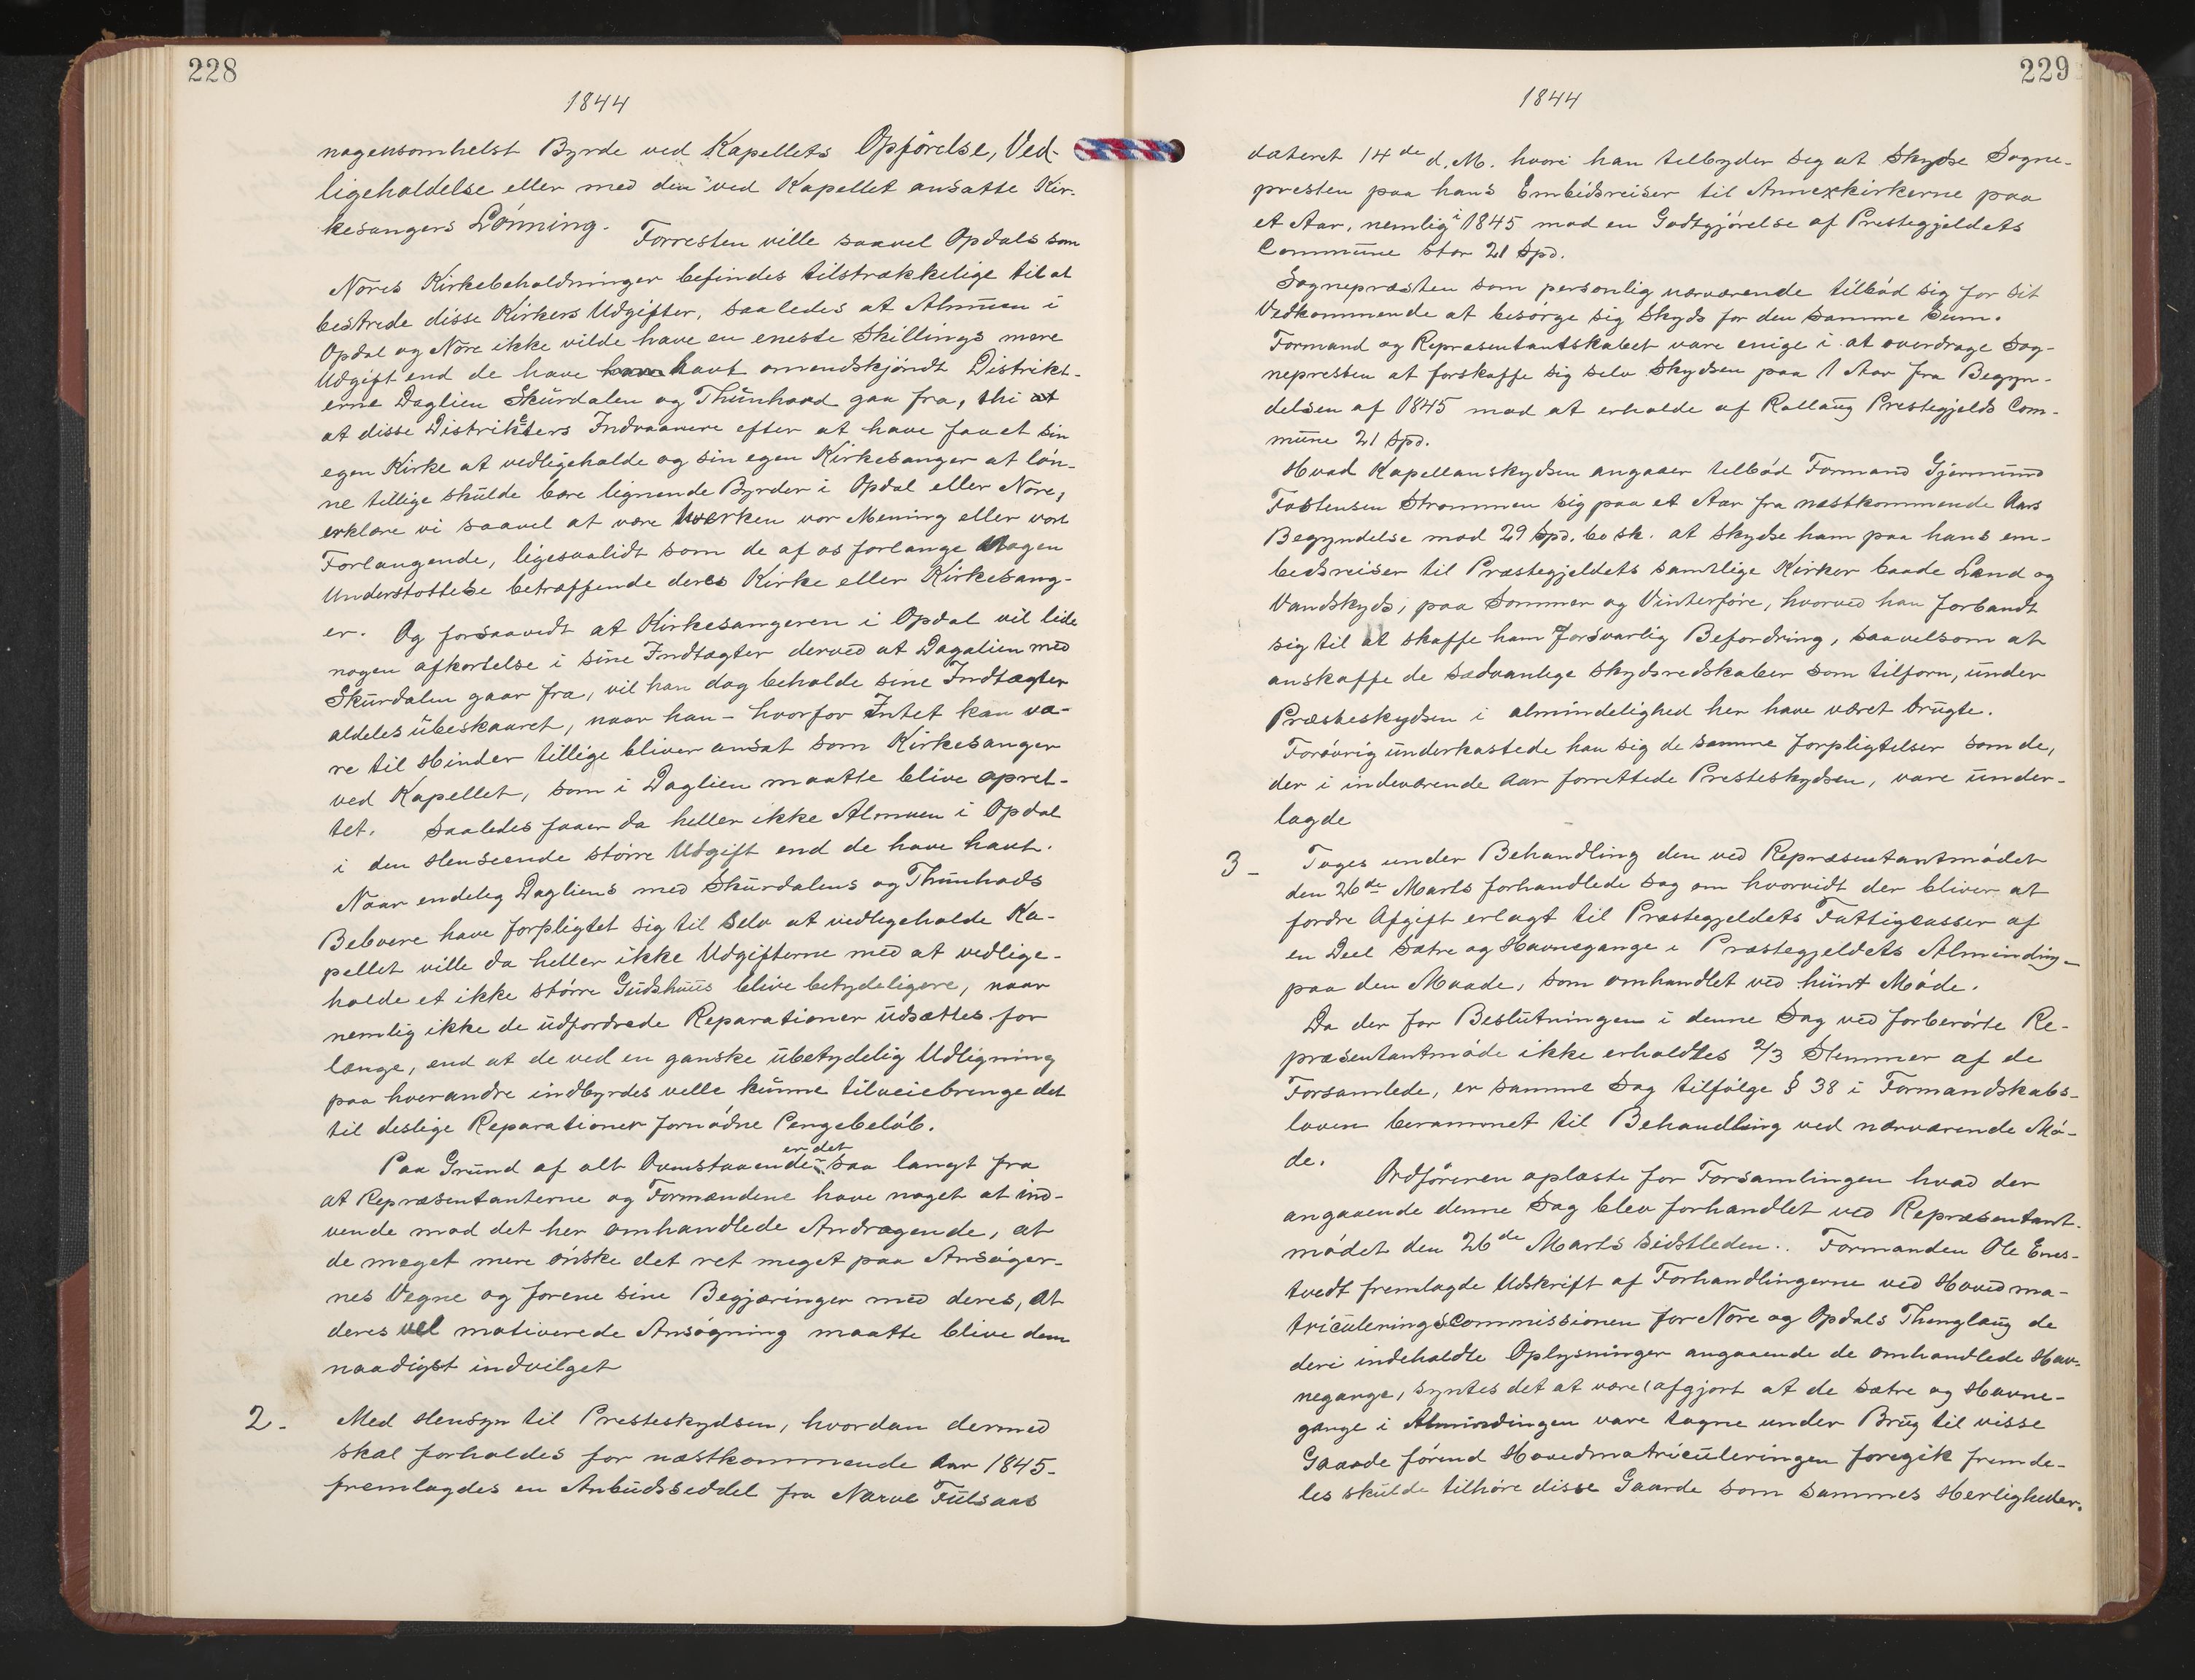 228
1844
nogensomhelst Byrde ved Kapellets Opförelse, Ved-
ligeholdelse eller med den ved Kapellet ansatte Kir-
kesangers Lönning. Forresten ville saavel Opdals som
Nores Kirkebeholdninger befindes tilstrækkelige til at
bestrede disse Kirkers Udgifter, saaledes at Almuen i
Opdal og Nore ikke vilde have en eneste Skillings mere
Udgift end de have havt omendskjöndt Distrikt-
erne Daglien Skurdalen og Thunhovd gaa fra, thi at
at disse Distrikters Indvaanere efter at have faaet sin
egen Kirke at vedligeholde og sin egen Kirkesanger at løn-
ne tillige skulde bære lignende Byrder i Opdal eller Nore,
erklære vi saavel at være hverken vor Mening eller vort
Forlangende, ligesaalidt som de af os forlange Nogen
Understøttelse betræffende deres Kirke eller Kirkesang-
er. Og forsaavidt at Kirkesangeren i Opdal vil lide
nogen afkortelse i sine Indtægter derved at Dagalien med
Skurdalen gaar fra, vil han dog beholde sine Indtægter
aldeles ubeskaaret, naar han - hvorfor Intet kan væ-
re til Hinder tillige bliver ansat som Kirkesanger
ved Kapellet, som i Daglien maatte blive opret-
tet. Saaledes faaer da heller ikke Almuen i Opdal
i den Henseende större Udgift end de have havt.
Naar endelig Dagliens med Skurdalens og Thunhods
Beboere have forpligtet sig til selv at vedligeholde Ka-
pellet ville da heller ikke Udgifterne med at vedlige-
holde et ikke större Gudshuus blive betydeligere, naar
nemlig ikke de udfordrede Reparationer udsættes for
længe, end at de ved en ganske ubetydelig Udligning
paa hverandre indbyrdes velle kunne tilveiebringe det
til deslige Reparationer fornødne Pengebeløb.
er det
Paa Grund af alt Ovenstaaende saa langt fra
at Repræsentanterne og Formændene have noget at ind-
vende mod det her omhandlede Andragende, at
de meget mere ønske det ret meget paa Ansøger-
nes Vegne og forene sine Begjæringer med deres, at
deres vel motiverede Ansøgning maatte blive dem
naadigst indvilget
2. Med Hensyn til Presteskydsen, hvordan dermed
skal forholdes for næstkommende Aar 1845-
fremlagdes en Anbudsseddel fra Narve Fulsaas
229
1844
dateret 14de d. M. hvori han tilbyder sig at Skydse Sogne-
presten paa hans Embedsreiser til Annexkirkerne paa
et Aar, nemlig i 1845 mod en Godtgjörelse af Prestegjeldets
Commune stor 21 Spd.
Sognepræsten som personlig nærværende tilbød sig for sit
Vedkommende at besørge sig Skyds for den samme Sum.
Formand og Repræsentantskabet vare enige i at overdrage Sog-
nepresten at forskaffe sig selv Skydsen paa 1 Aar fra Begyn-
delsen af 1845 mod at erholde af Rollaug Prestegjelds Com-
mune 21 Spd.
Hvad Kapellanskydsen angaaer tilbød Formand Gjermund
Tostensen Strømmen sig paa et Aar fra næstkommende Aars
Begyndelse mod 29 Spd. 60 sk. at skydse ham paa hans em-
bedsreiser til Præstegjeldets samtlige Kirker baade Land og
Vandskyds, paa Sommer og Vinterføre, hvorved han forbandt
sig til at skaffe ham forsvarlig Befordring, saavelsom at
anskaffe de sædvanlige skydsredskaber som tilforn, under
Præsteskydsen i almindelighed her have været brugte.
Forøvrig underkastede han sig de samme forpligtelser som de,
der i indeværende Aar forrettede Presteskydsen, vare under-
lagde
3- Toges under Behandling den ved Repræsentantmödet
den 26de Marts forhandlede Sag om hvorvidt der bliver at
fordre Afgift erlagt til Præstegjeldets Fattigcasser af
en Deel Sætre og Havnegange i Præstegjeldets Alminding-
paa den Maade, som omhandlet ved hiint Møde.
Da der for Beslutningen i denne Sag ved forberørte Re-
præsentantmøde ikke erholdtes 2/3 Stemmer af de
Forsamlede, er samme Sag tilfølge § 38 i Formandskabs-
loven berammet til Behandling ved nærværende Mø-
de. Ordføreren oplæste for Forsamlingen hvad der
angaaende denne Sag blev forhandlet ved Repræsentant-
mødet den 26de Marts sidstleden.. Formanden Ole Evens-
tvedt fremlagde Udskrift af Forhandlingerne ved Hovedma-
triculeringsCommissionen for Nore og Opdals Thinglaug de
deri indeholdte Oplysninger angaaende de omhandlede Hav-
negange, syntes det at være afgjort at de Sætre og Havne-
gange i Almindingen vare tagne under Brug til visse
Gaarde förend Hovedmatriculeringen foregik fremde-
les skulde tilhøre disse Gaarde som sammes Herligheder.